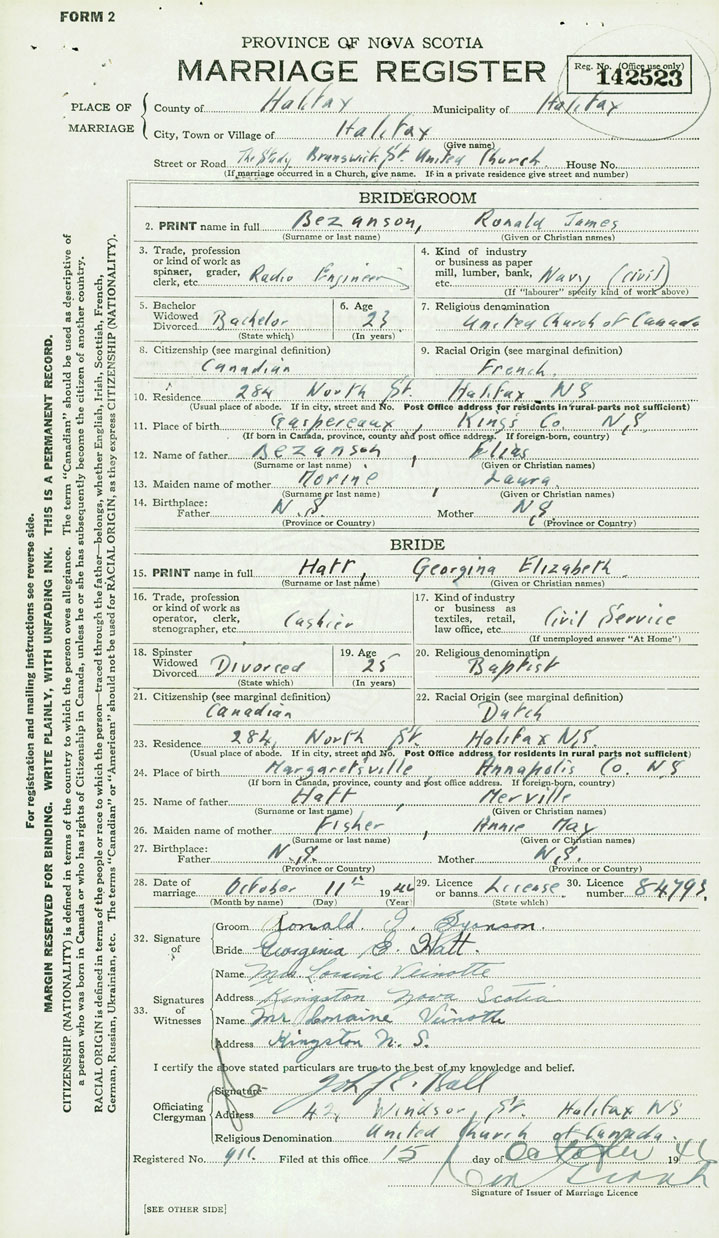 FORM 2
PROVINCE OF NOVA SCOTIA
MARRIAGE REGISTER
Reg. No. (Office use only)
142523
PLACE OF MARRIAGE
County of Halifax Municipality of Halifax
City, Town or Village of Halifax
(Give name)
Street or Road The Study Brunswick St. United Church House No.
(If marriage occurred in a Church, give name. If in a private residence give street and number)
BRIDEGROOM
2. PRINT name in full Bezanson, Ronald James
(Surname or last name) (Given or Christian names)
3. Trade, profession or kind of work as spinner, grader, clerk, etc. Radio Engineer
4. Kind of industry or business as paper mill, lumber, bank, etc. Navy (civil)
(If "labourer" specify kind of work above)
5. Bachelor Widowed Divorced Bachelor
(State which)
6. Age 23
(In years)
7. Religious denomination
United Church of Canada
8. Citizenship (see marginal definition)
Canadian
9. Racial Origin (see marginal definition)
French
10. Residence 284 North St. Halifax NS
(Usual place of abode. If in city, street and No. Post Office address for residents in rural parts not sufficient)
11. Place of birth Gaspereaux, Kings Co. N.S.
(If born in Canada, province, county and post office address. If foreign-born, country)
12. Name of father Bezanson, Elias
(Surname or last name) (Given or Christian names)
13. Maiden name of mother Morine, Laura
(Surname or last name) (Given or Christian names)
14. Birthplace: Father N.S. Mother NS
(Province or Country) (Province or Country)
BRIDE
15. PRINT name in full Hatt, Georgina Elizabeth
(Surname or last name) (Given or Christian names)
16. Trade, profession or kind of work as operator, clerk, stenographer, etc. Cashier
17. Kind of industry or business as textiles, retail, law office, etc. Civil Service
(If unemployed answer "At Home")
18. Spinster Widowed Divorced Divorced
(State which)
19. Age 25
(In years)
20. Religious denomination
Baptist
21. Citizenship (see marginal definition)
Canadian
22. Racial Origin (see marginal definition)
Dutch
23. Residence 284, North St. Halifax N.S.
(Usual place of abode. If in city, street and No. Post Office address for residents in rural parts not sufficient)
24. Place of birth Margaretsville Annapolis Co. N.S
(If born in Canada, province, county and post office address. If foreign-born, country)
25. Name of father Hatt, Merville
(Surname or last name) (Given or Christian names)
26. Maiden name of mother Fisher, Annie May
(Surname or last name) (Given or Christian names)
27. Birthplace: Father N.S. Mother N.S.
(Province or Country) (Province or Country)
28. Date of marriage October 11th 19
(Month by name) (Day) (Year)
29. Licence or banns License
(State which)
30. Licence number 84793
32. Signature of
Groom Ronald J.
Bride Georginia E. Hatt.
33. Signatures of Witnesses
Name Mrs Lorraine Veinotte
Address Kingston Nova Scotia
Name Mr Lorraine Veinotte
Address Kingston N. S.
I certify the above stated particulars are true to the best of my knowledge and belief.
Officiating Clergyman
Signature John E. Ball
Address 42, Windsor St. Halifax NS
Religious Denomination United Church of Canada.
Registered No. 911. Filed at this office 15 day of October 19
Signature of Issuer of Marriage Licence
[SEE OTHER SIDE]
For registration and mailing instructions see reverse side.
MARGIN RESERVED FOR BINDING. WRITE PLAINLY, WITH UNFADING INK. THIS IS A PERMANENT RECORD.
CITIZENSHIP (NATIONALITY) is defined in terms of the country to which the person owes allegiance. The term "Canadian" should be used as descriptive of
a person who was born in Canada or who has rights of Citizenship in Canada, unless he or she has subsequently become the citizen of another country.
RACIAL ORIGIN is defined in terms of the people or race to which the person—traced through the father—belongs, whether English, Irish, Scottish, French,
German, Russian, Ukrainian, etc. The terms "Canadian" or "American" should not be used for RACIAL ORIGIN, as they express CITIZENSHIP (NATIONALITY).